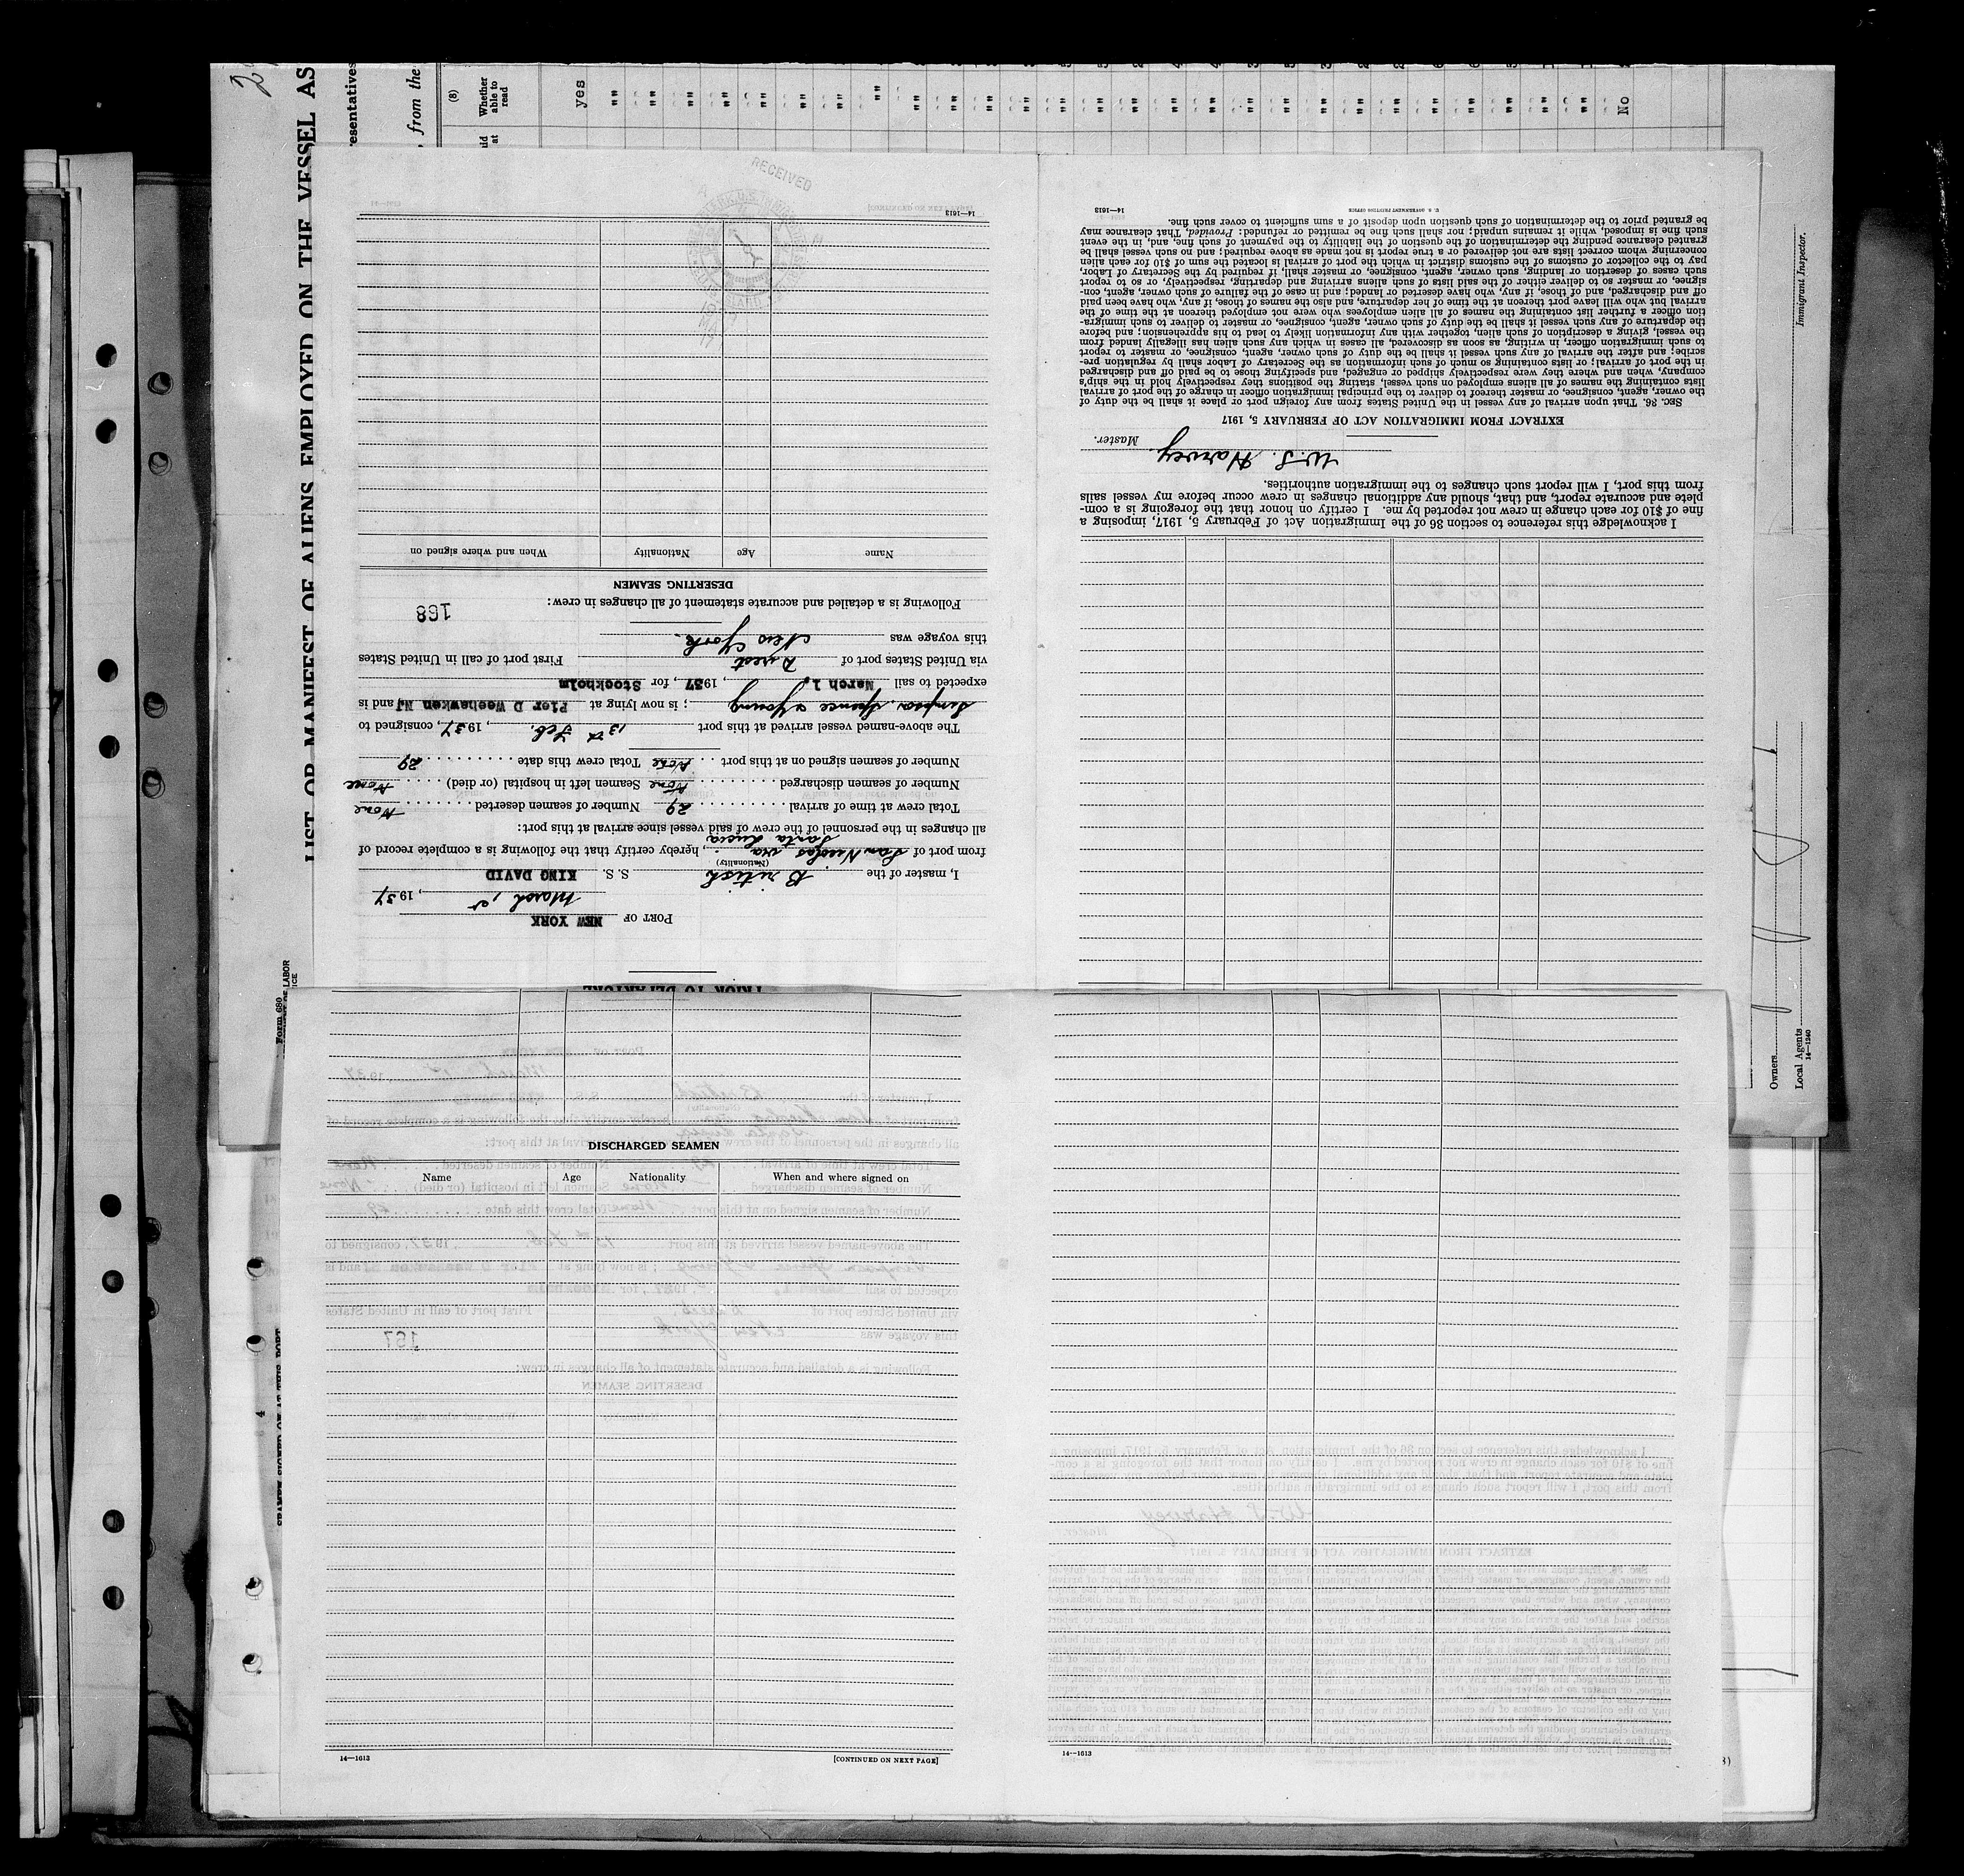 LIST OR MANIFEST OF ALIENS EMPLOYED ON THE VESSEL AS
from the
(8)
Whether able to read
yes
No
Immigrant Inspector.
Owners
Local Agents
14—1240
Form 680
PORT OF NEW YORK
March 1st, 1937
I, master of the British S. S. KING DAVID
(Nationality)
from port of San Nicolas via Santa Lucia, hereby certify that the following is a complete record of
all changes in the personnel of the crew of said vessel since arrival at this port:
Total crew at time of arrival 29 Number of seamen deserted None
Number of seamen discharged None Seamen left in hospital (or died) None
Number of seamen signed on at this port None Total crew this date 29
The above-named vessel arrived at this port 13th Feb., 1937, consigned to
Simpson, Spence & Young; is now lying at Pier D Weehawken NJ and is
expected to sail March 1, 1937, for Stockholm
via United States port of Direct First port of call in United States
this voyage was New York.
Following is a detailed and accurate statement of all changes in crew:
168
DESERTING SEAMEN
Name Age Nationality When and where signed on
14—1613
RECEIVED
I acknowledge this reference to section 36 of the Immigration Act of February 5, 1917, imposing a
fine of $10 for each change in crew not reported by me. I certify on honor that the foregoing is a com-
plete and accurate report, and that, should any additional changes in crew occur before my vessel sails
from this port, I will report such changes to the immigration authorities.
W. S. Harvey.
Master.
EXTRACT FROM IMMIGRATION ACT OF FEBRUARY 5, 1917
SEC. 36. That upon arrival of any vessel in the United States from any foreign port or place it shall be the duty of
the owner, agent, consignee, or master thereof to deliver to the principal immigration officer in charge of the port of arrival
lists containing the names of all aliens employed on such vessel, stating the positions they respectively hold in the ship's
company, when and where they were respectively shipped or engaged, and specifying those to be paid off and discharged
in the port of arrival; or lists containing so much of such information as the Secretary of Labor shall by regulation pre-
scribe; and after the arrival of any such vessel it shall be the duty of such owner, agent, consignee, or master to report
to such immigration officer, in writing, as soon as discovered, all cases in which any such alien has illegally landed from
the vessel, giving a description of such alien, together with any information likely to lead to his apprehension; and before
the departure of any such vessel it shall be the duty of such owner, agent, consignee, or master to deliver to such immigra-
tion officer a further list containing the names of all alien employees who were not employed thereon at the time of the
arrival but who will leave port thereon at the time of her departure, and also the names of those, if any, who have been paid
off and discharged, and of those, if any, who have deserted or landed; and in case of the failure of such owner, agent, con-
signee, or master so to deliver either of the said lists of such aliens arriving and departing, respectively, or so to report
such cases of desertion or landing, such owner, agent, consignee, or master shall, if required by the Secretary of Labor,
pay to the collector of customs of the customs district in which the port of arrival is located the sum of $10 for each alien
concerning whom correct lists are not delivered or a true report is not made as above required; and no such vessel shall be
granted clearance pending the determination of the question of the liability to the payment of such fine, and, in the event
such fine is imposed, while it remains unpaid; nor shall such fine be remitted or refunded: Provided, That clearance may
be granted prior to the determination of such question upon deposit of a sum sufficient to cover such fine.
U. S. GOVERNMENT PRINTING OFFICE
14—1613
DISCHARGED SEAMEN
Name Age Nationality When and where signed on
14—1613
[CONTINUED ON NEXT PAGE]
14—1613